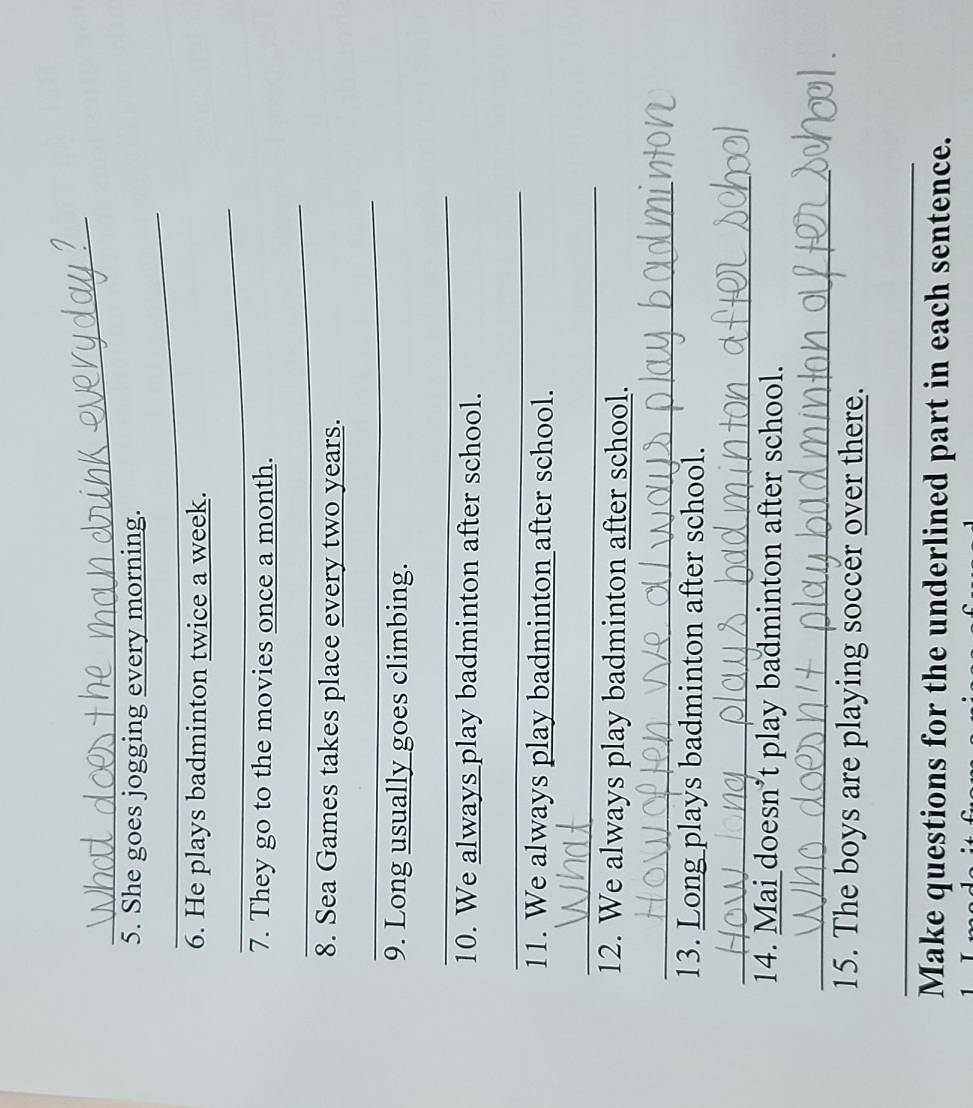 What does the man drink everyday?
5. She goes jogging every morning.
6. He plays badminton twice a week.
7. They go to the movies once a month.
8. Sea Games takes place every two years.
9. Long usually goes climbing.
10. We always play badminton after school.
11. We always play badminton after school.
What
12. We always play badminton after school.
How often we always play badminton
13. Long plays badminton after school.
How long plays badminton after school
14. Mai doesn't play badminton after school.
Who doesn't play badminton after school.
15. The boys are playing soccer over there.
Make questions for the underlined part in each sentence.